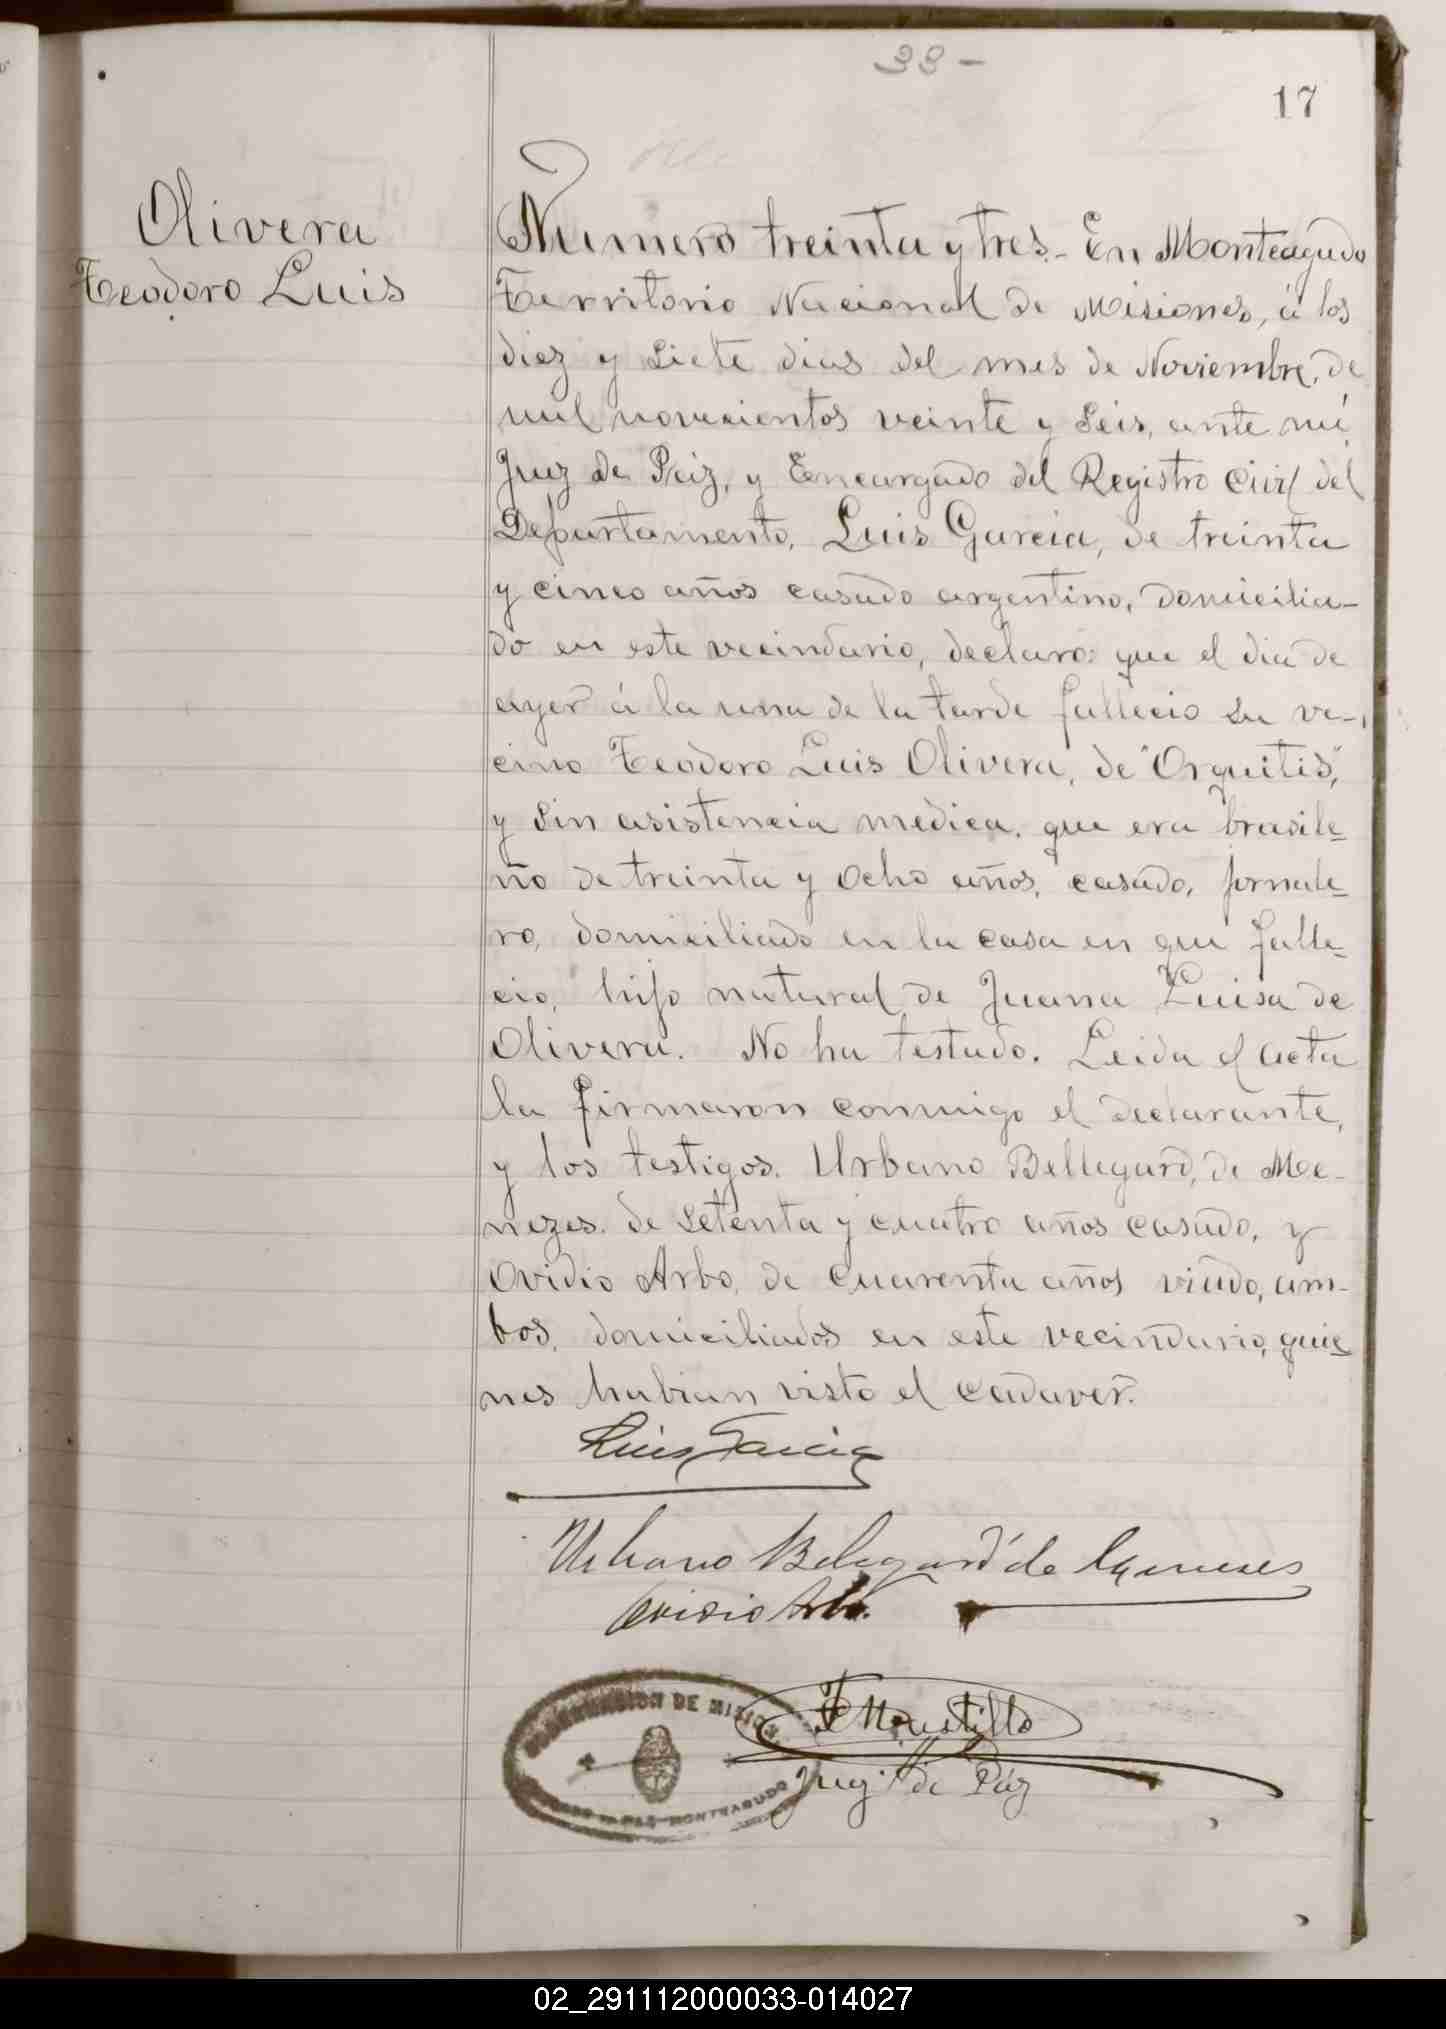 33-
17
Olivera
Teodoro Luis
Numero treinta y tres.- En Monteagudo
Territorio Nacional de Misiones, á los
diez y siete dias del mes de Noviembre, de
mil novecientos veinte y seis, ante mi
Juez de Paz, y Encargado del Registro Civil del
Departamento, Luis Garcia, de treinta
y cinco años casado argentino, domicilia-
do en este vecindario, declaró: que el dia de
ayer á la una de la tarde fallecio su ve-
cino Teodoro Luis Olivera, de "Orquitis",
y sin asistencia medica, que era brasile-
ño de treinta y ocho años, casado, jornale-
ro, domiciliado en la casa en que falle-
cio, hijo natural de Juana Luisa de
Olivera. No ha testado. Leida el acta
la firmaron conmigo el declarante,
y los testigos. Urbano Bellegard, de Me-
nezes. de setenta y cuatro años casado, y
Ovidio Arbo, de cuarenta años viudo, am-
bos, domiciliados en este vecindario, quie-
nes habian visto el cadaver.
Luis Garcia
Urbano Belegard de Meneses
Ovidio Arbo.
GOBERNACION DE MISIONES
JUZGADO DE PAZ MONTEAGUDO
Juez de Paz
02_291112000033-014027